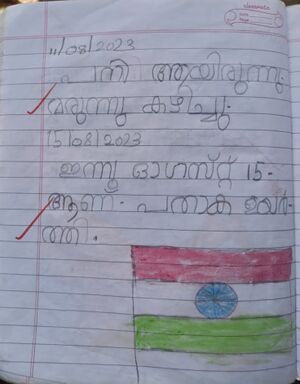 classmate
Date
Page
11/08/2023
പനി ആയിരുന്നു.
മരുന്നു കഴിച്ചു.
15/08/2023
ഇന്നു ഓഗസ്റ്റ് 15-
ആണ. പതാക ഉയർ-
ത്തി.